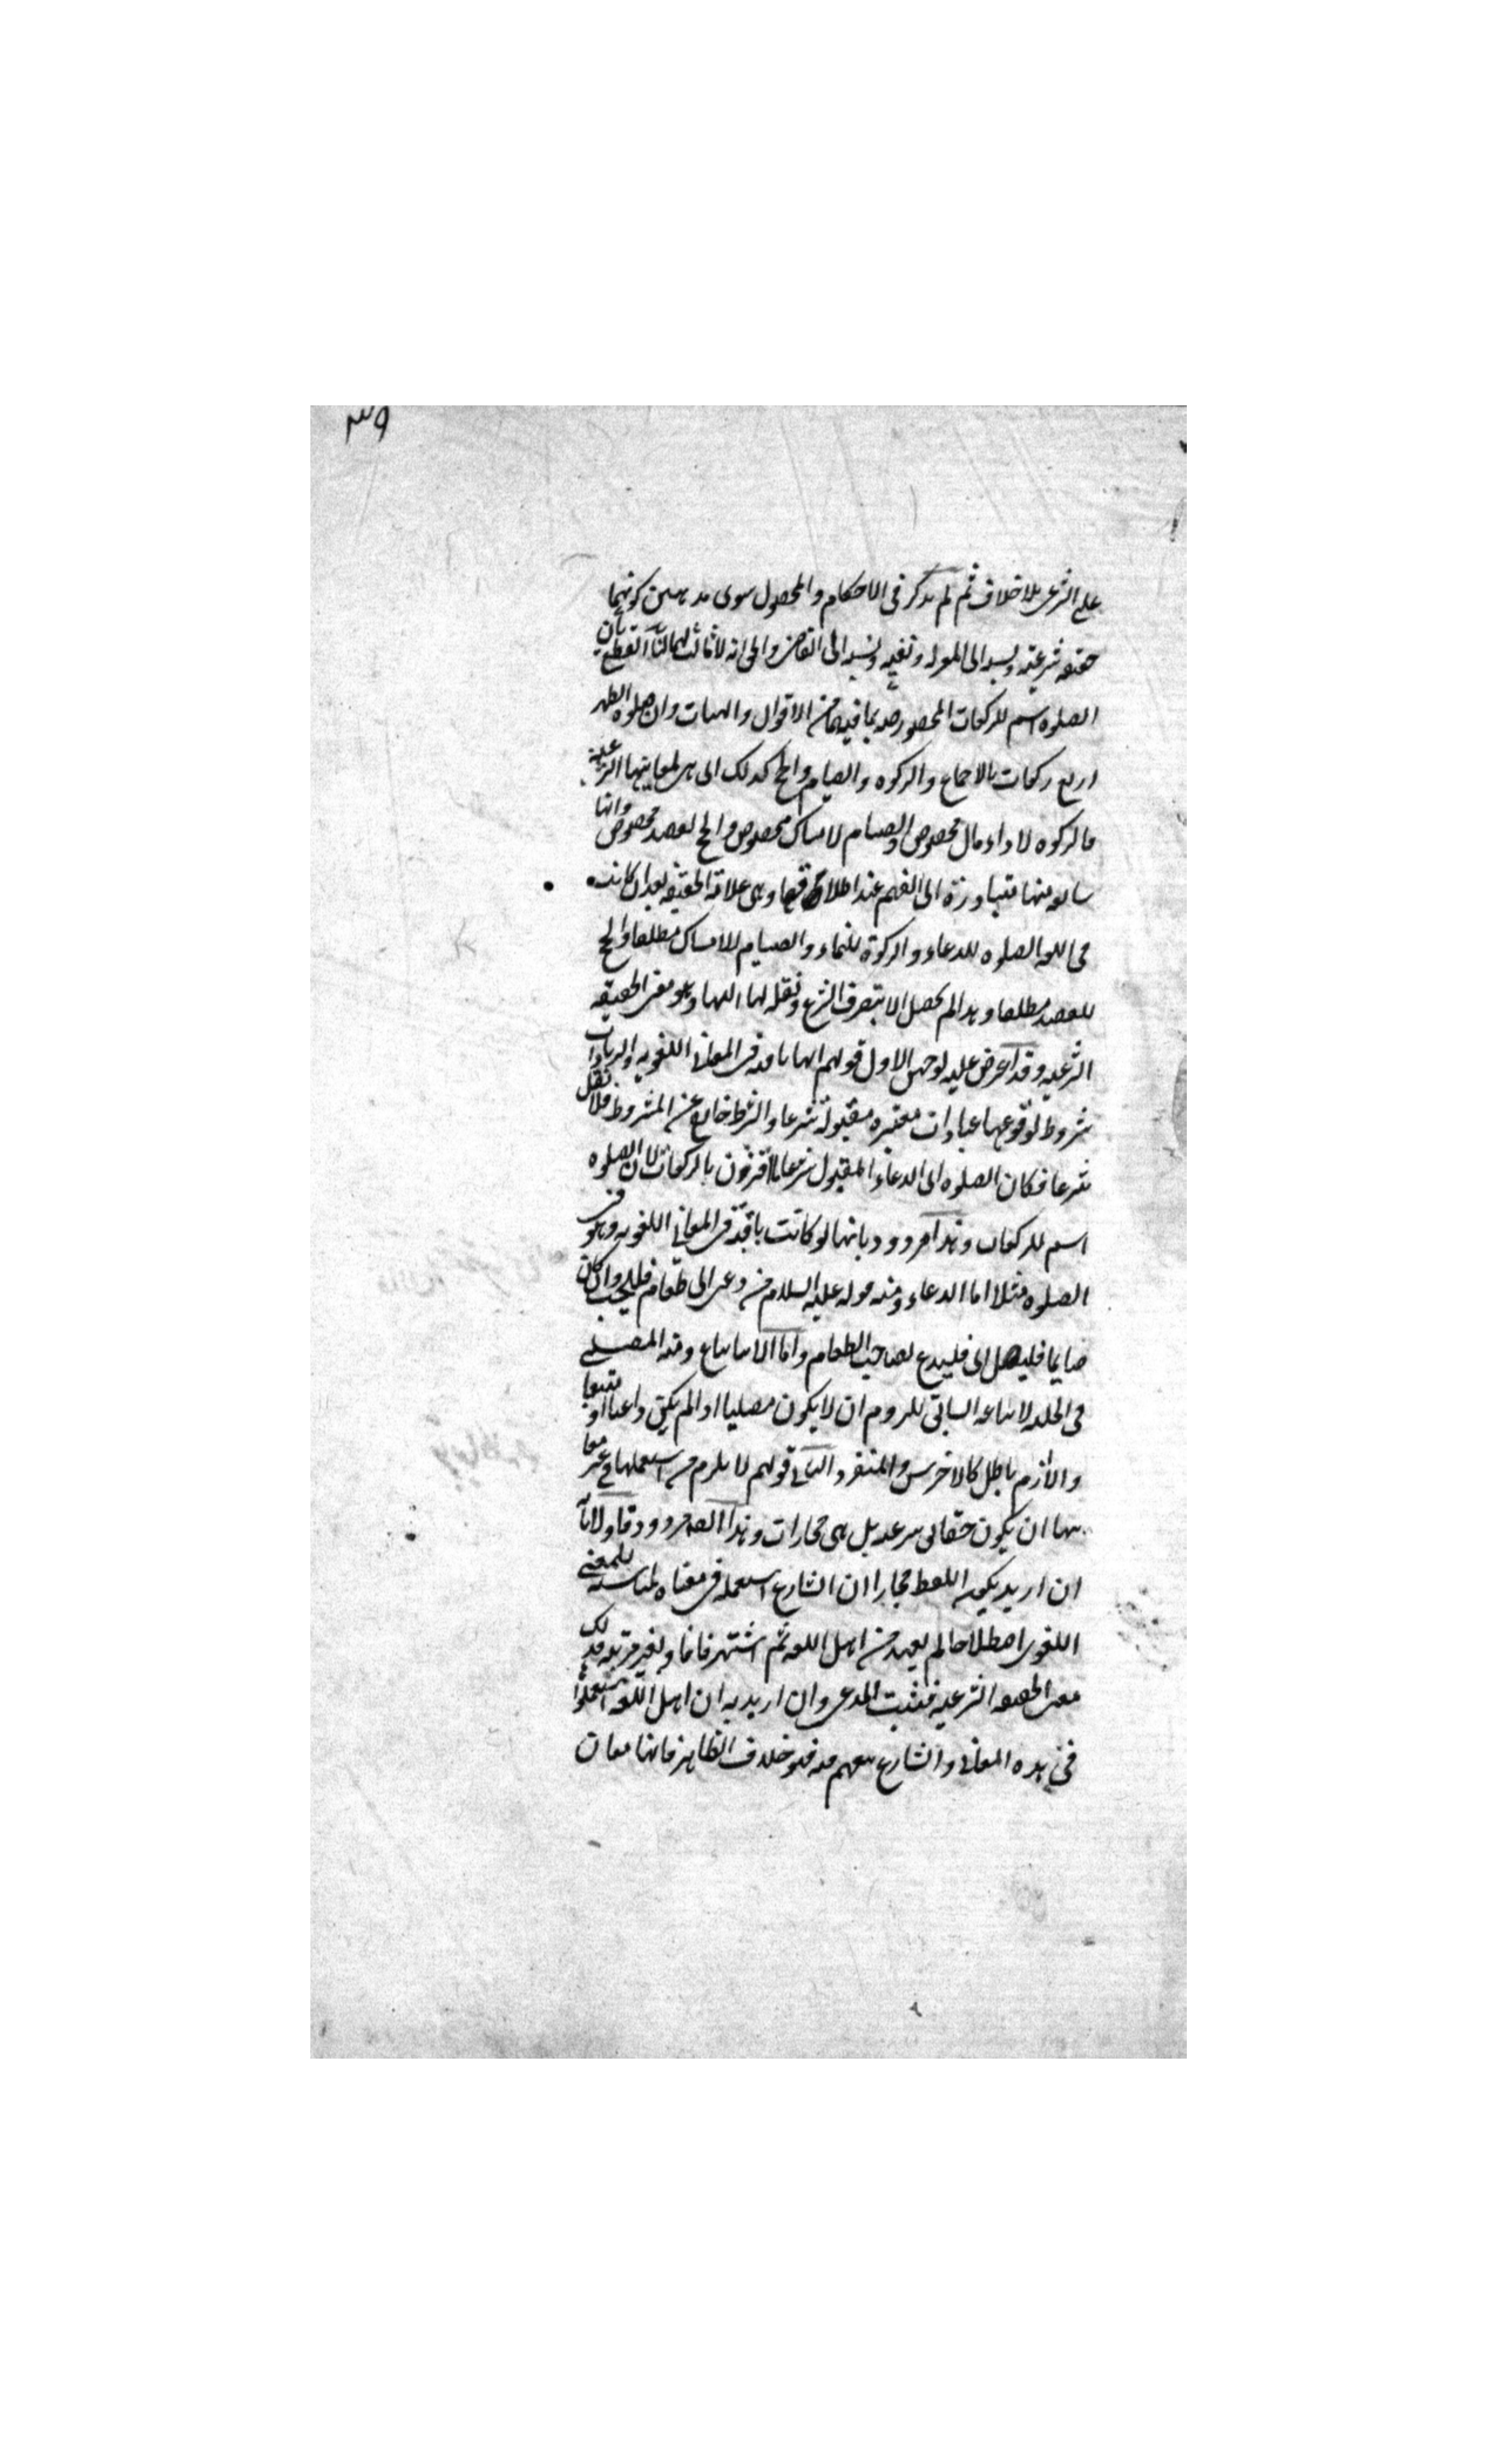 ٣٩
على الشرعى بلا خلاف ثم لم يذكر فى الاحكام والمحصول سوى مذهبين كونها
حقيقه شرعيه ونسبه الى المعتزله ونفيه ونسبه الى القاضى والحق انه لا ثالث لهما لنا القطع بان
الصلوه اسم للركعات المخصوصه بما فيها من الاقوال والهيات وان صلوه الظهر
اربع ركعات بالاجماع والزكوه والصيام والحج كذلك اى هى لمعانيها الشرعية
فالزكوه لاداء مال مخصوص والصيام لامساك مخصوص والحج لقصد مخصوص وانها
سابقه منها متبادرة الى الفهم عند اطلاقها وهى علامة الحقيقه بعد ان كانت
فى اللغه الصلوه للدعاء والزكوة للنماء والصيام للامساك مطلقا والحج
للقصد مطلقا وهذا لم يحصل الا بتصرف الشرع ونقله لها اليها وهو معنى الحقيقه
الشرعيه وقد اعرض عليه بوجهين الاول قولهم انها باقيه فى المعانى اللغويه والزيادات
شروط لوقوعها عبادات معتبره مقبولة شرعا والشرط خارج عن المشروط فلا نقل
شرعا فكان الصلوه اى الدعاء المقبول شرعا ما اقترن بالركعات لا ان الصلوه
اسم للركعات وهذا مردود بانها لو كانت باقية فى المعانى اللغويه وهو فى
الصلوه مثلا اما الدعاء ومنه قوله عليه السلام من دعى الى طعام فليجب وان كان
صايما فليصل اى فليدع لصاحب الطعام واما الاتباع ومنه المصلى
فى الحلبه لاتباعه السابق للزوم ان لا يكون مصليا اذا لم يكن داعيا او متبعا
واللازم باطل كالاخرس والمنفرد الثانى قولهم لا يلزم من استعمالها فى غير معا
نيها ان يكون حقايق شرعيه بل هى مجازات وهذا ايضا مردود فاولا بانه
ان اريد بكون اللفظ مجازا ان الشارع استعمله فى معناه لمناسبته للمعنى
اللغوى اصطلاحا لم يعهد من اهل اللغه ثم اشتهر فافاد بغير قرينه فذلك
معنى الحقيقه الشرعيه فيثبت المدعى وان اريد به ان اهل اللغه استعملوا
فى هذه المعانى والشارع تبعهم فيه فهو خلاف الظاهر فانها معان